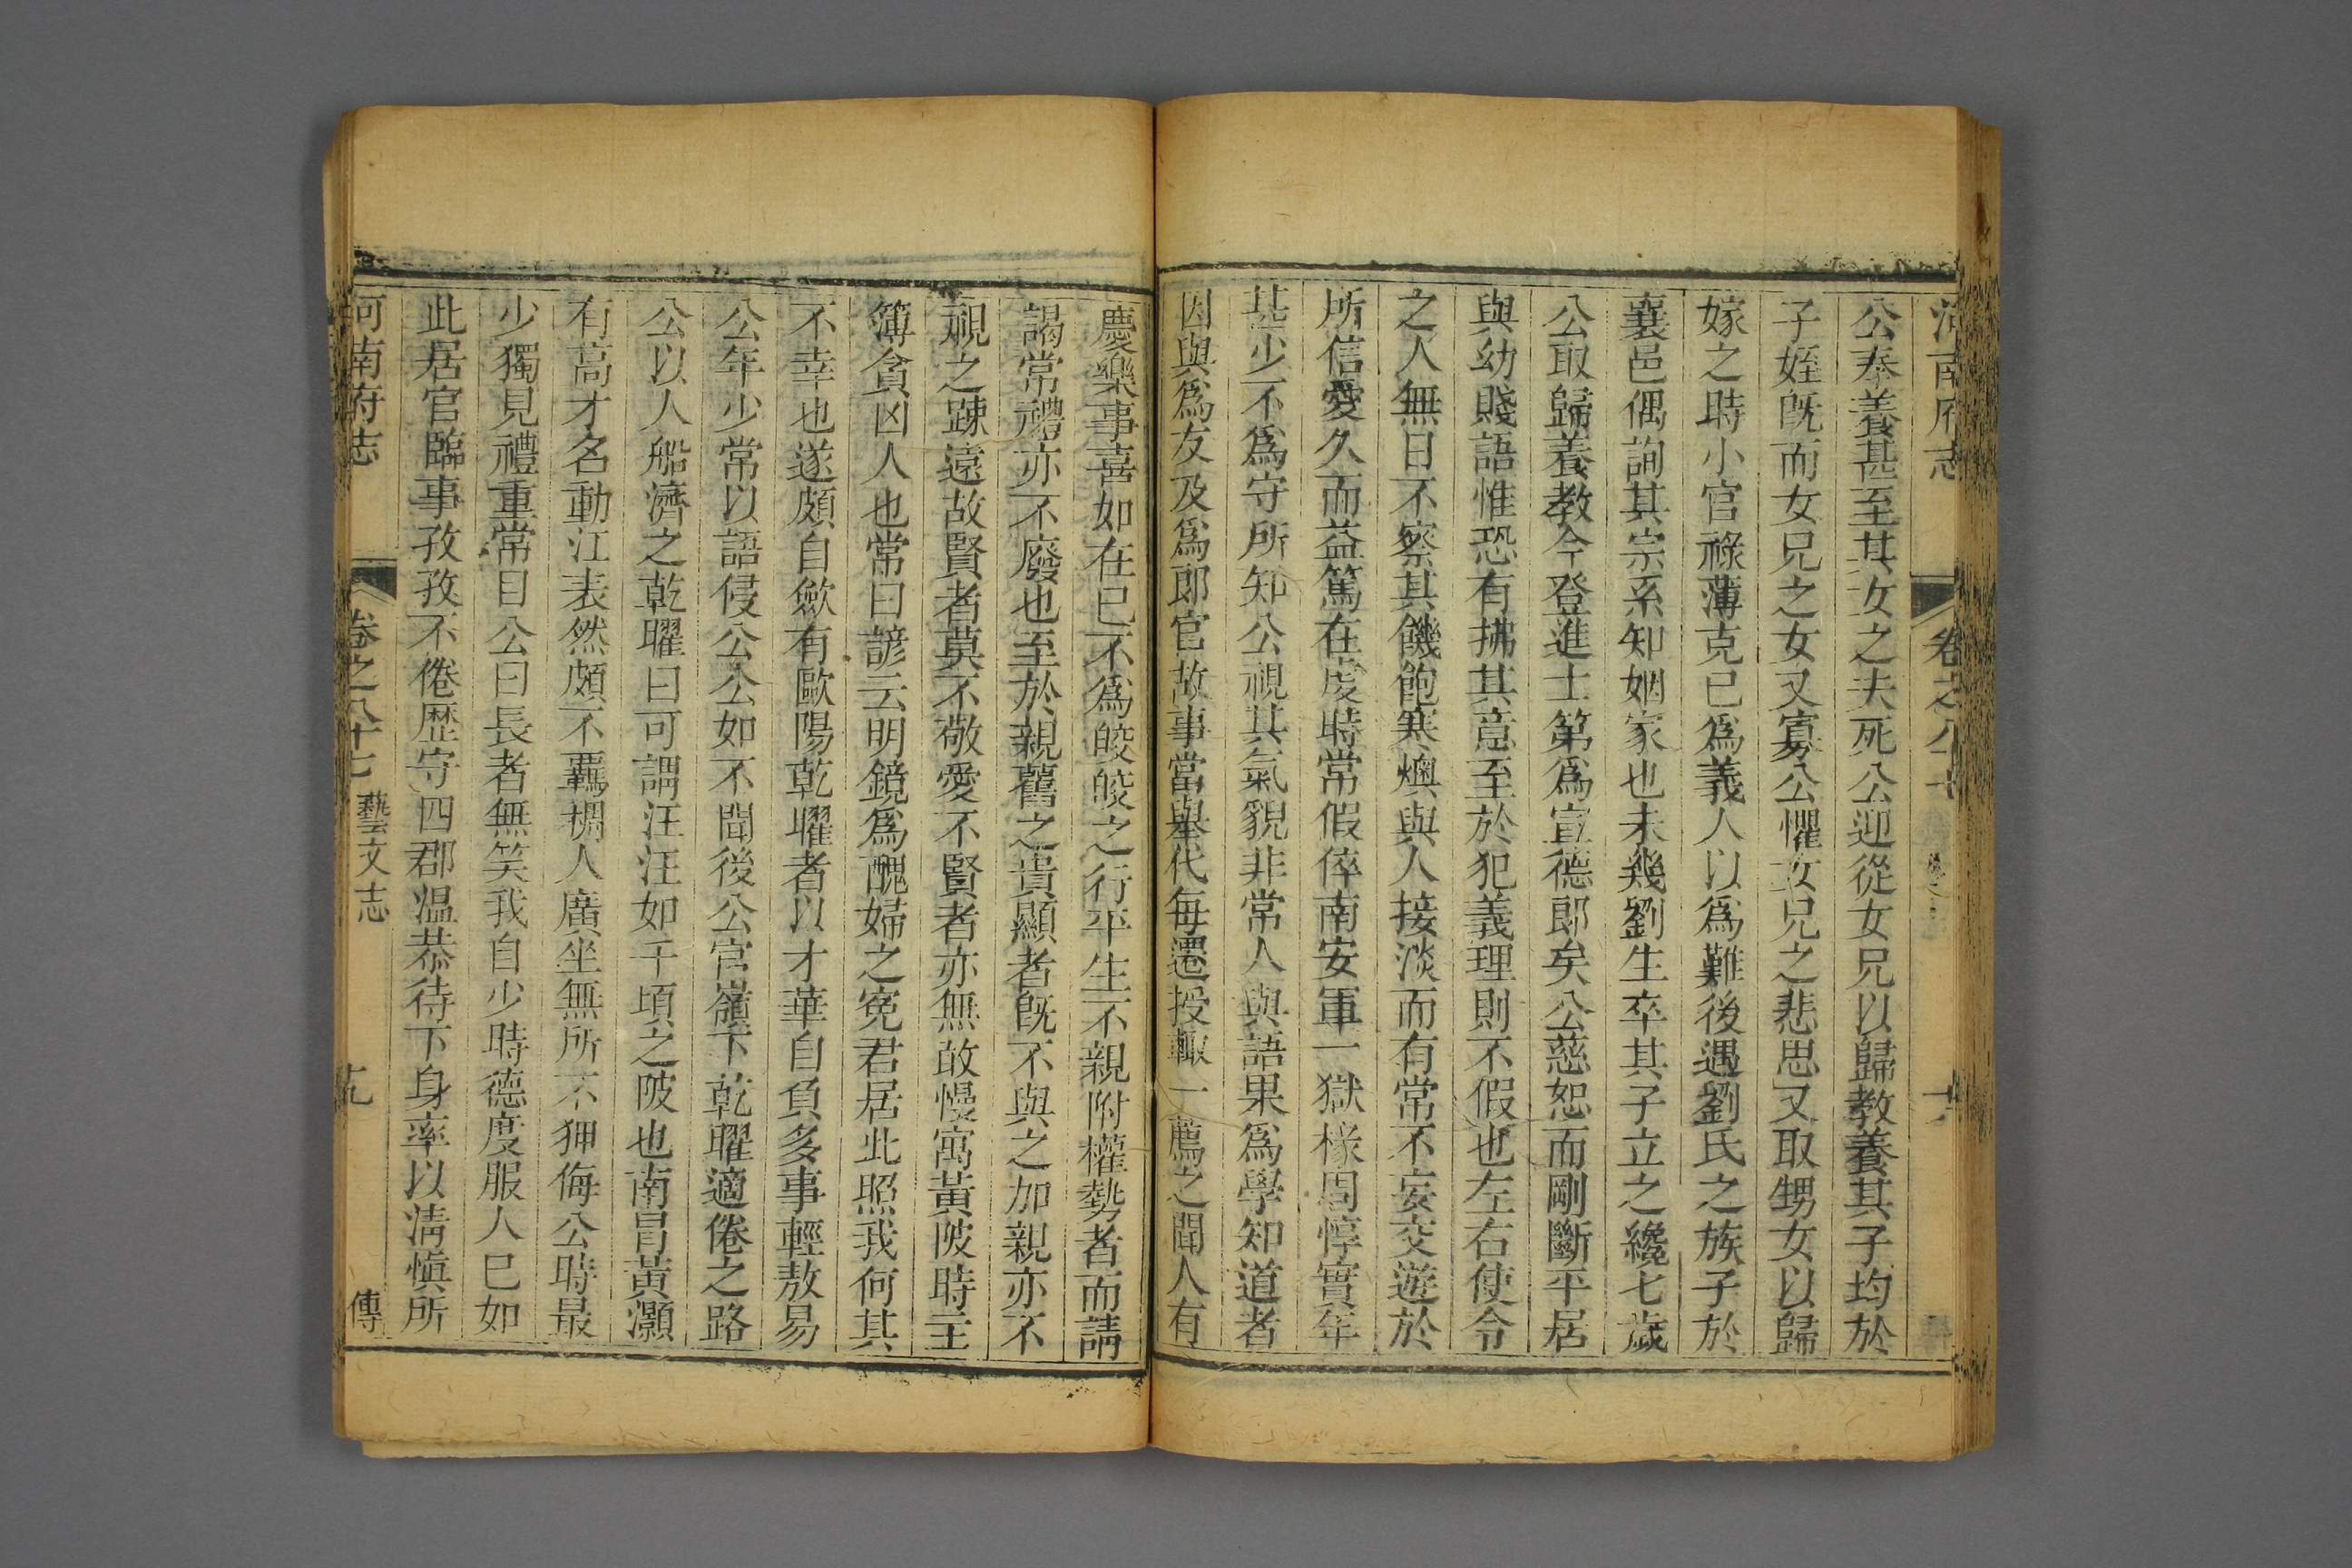 河南府志 卷之八十
公奉養甚至其女之夫死公迎從女兄以歸教養其子均於
子姪旣而女兄之女又寡公懼女兄之悲思又取甥女以歸
嫁之時小官祿薄克已爲義人以爲難後遇劉氏之族子於
襄邑偶詢其宗系知姻家也未幾劉生卒其子立之纔七歲
公取歸養教今登進士第爲宣德郎矣公慈恕而剛斷平居
與幼賤語惟恐有拂其意至於犯義理則不假也左右使令
之人無日不察其饑飽寒燠與人接淡而有常不妄交遊於
所信愛久而益篤在虔時常假倅南安軍一獄椽周惇實年
甚少不爲守所知公視其氣貌非常人與語果爲學知道者
因與爲友及爲郎官故事當舉代每遷授輙一薦之聞人有
慶樂事喜如在已不為皎皎之行平生不親附權勢者而請
謁常禮亦不廢也至於親舊之貴顯者旣不與之加親亦不
視之踈遠故賢者莫不敬愛不賢者亦無敢慢寓黃陂時主
簿貪凶人也常曰諺云明鏡爲醜婦之寃君居此照我何其
不幸也遂頗自歛有歐陽乾曜者以才華自負多事輕敖易
公年少常以語侵公公如不聞後公官嶺下乾曜適倦之路
公以人船濟之乾曜曰可謂汪汪如千頃之陂也南昌黃灝
有高才名動江表然頗不羈搠人廣坐無所不狎侮公時最
少獨見禮重常目公曰長者無笑我自少時德度服人巳如
此居官臨事孜孜不倦歷守四郡溫恭待下身率以淸愼所
河南府志 卷之八十七 藝文志 傳